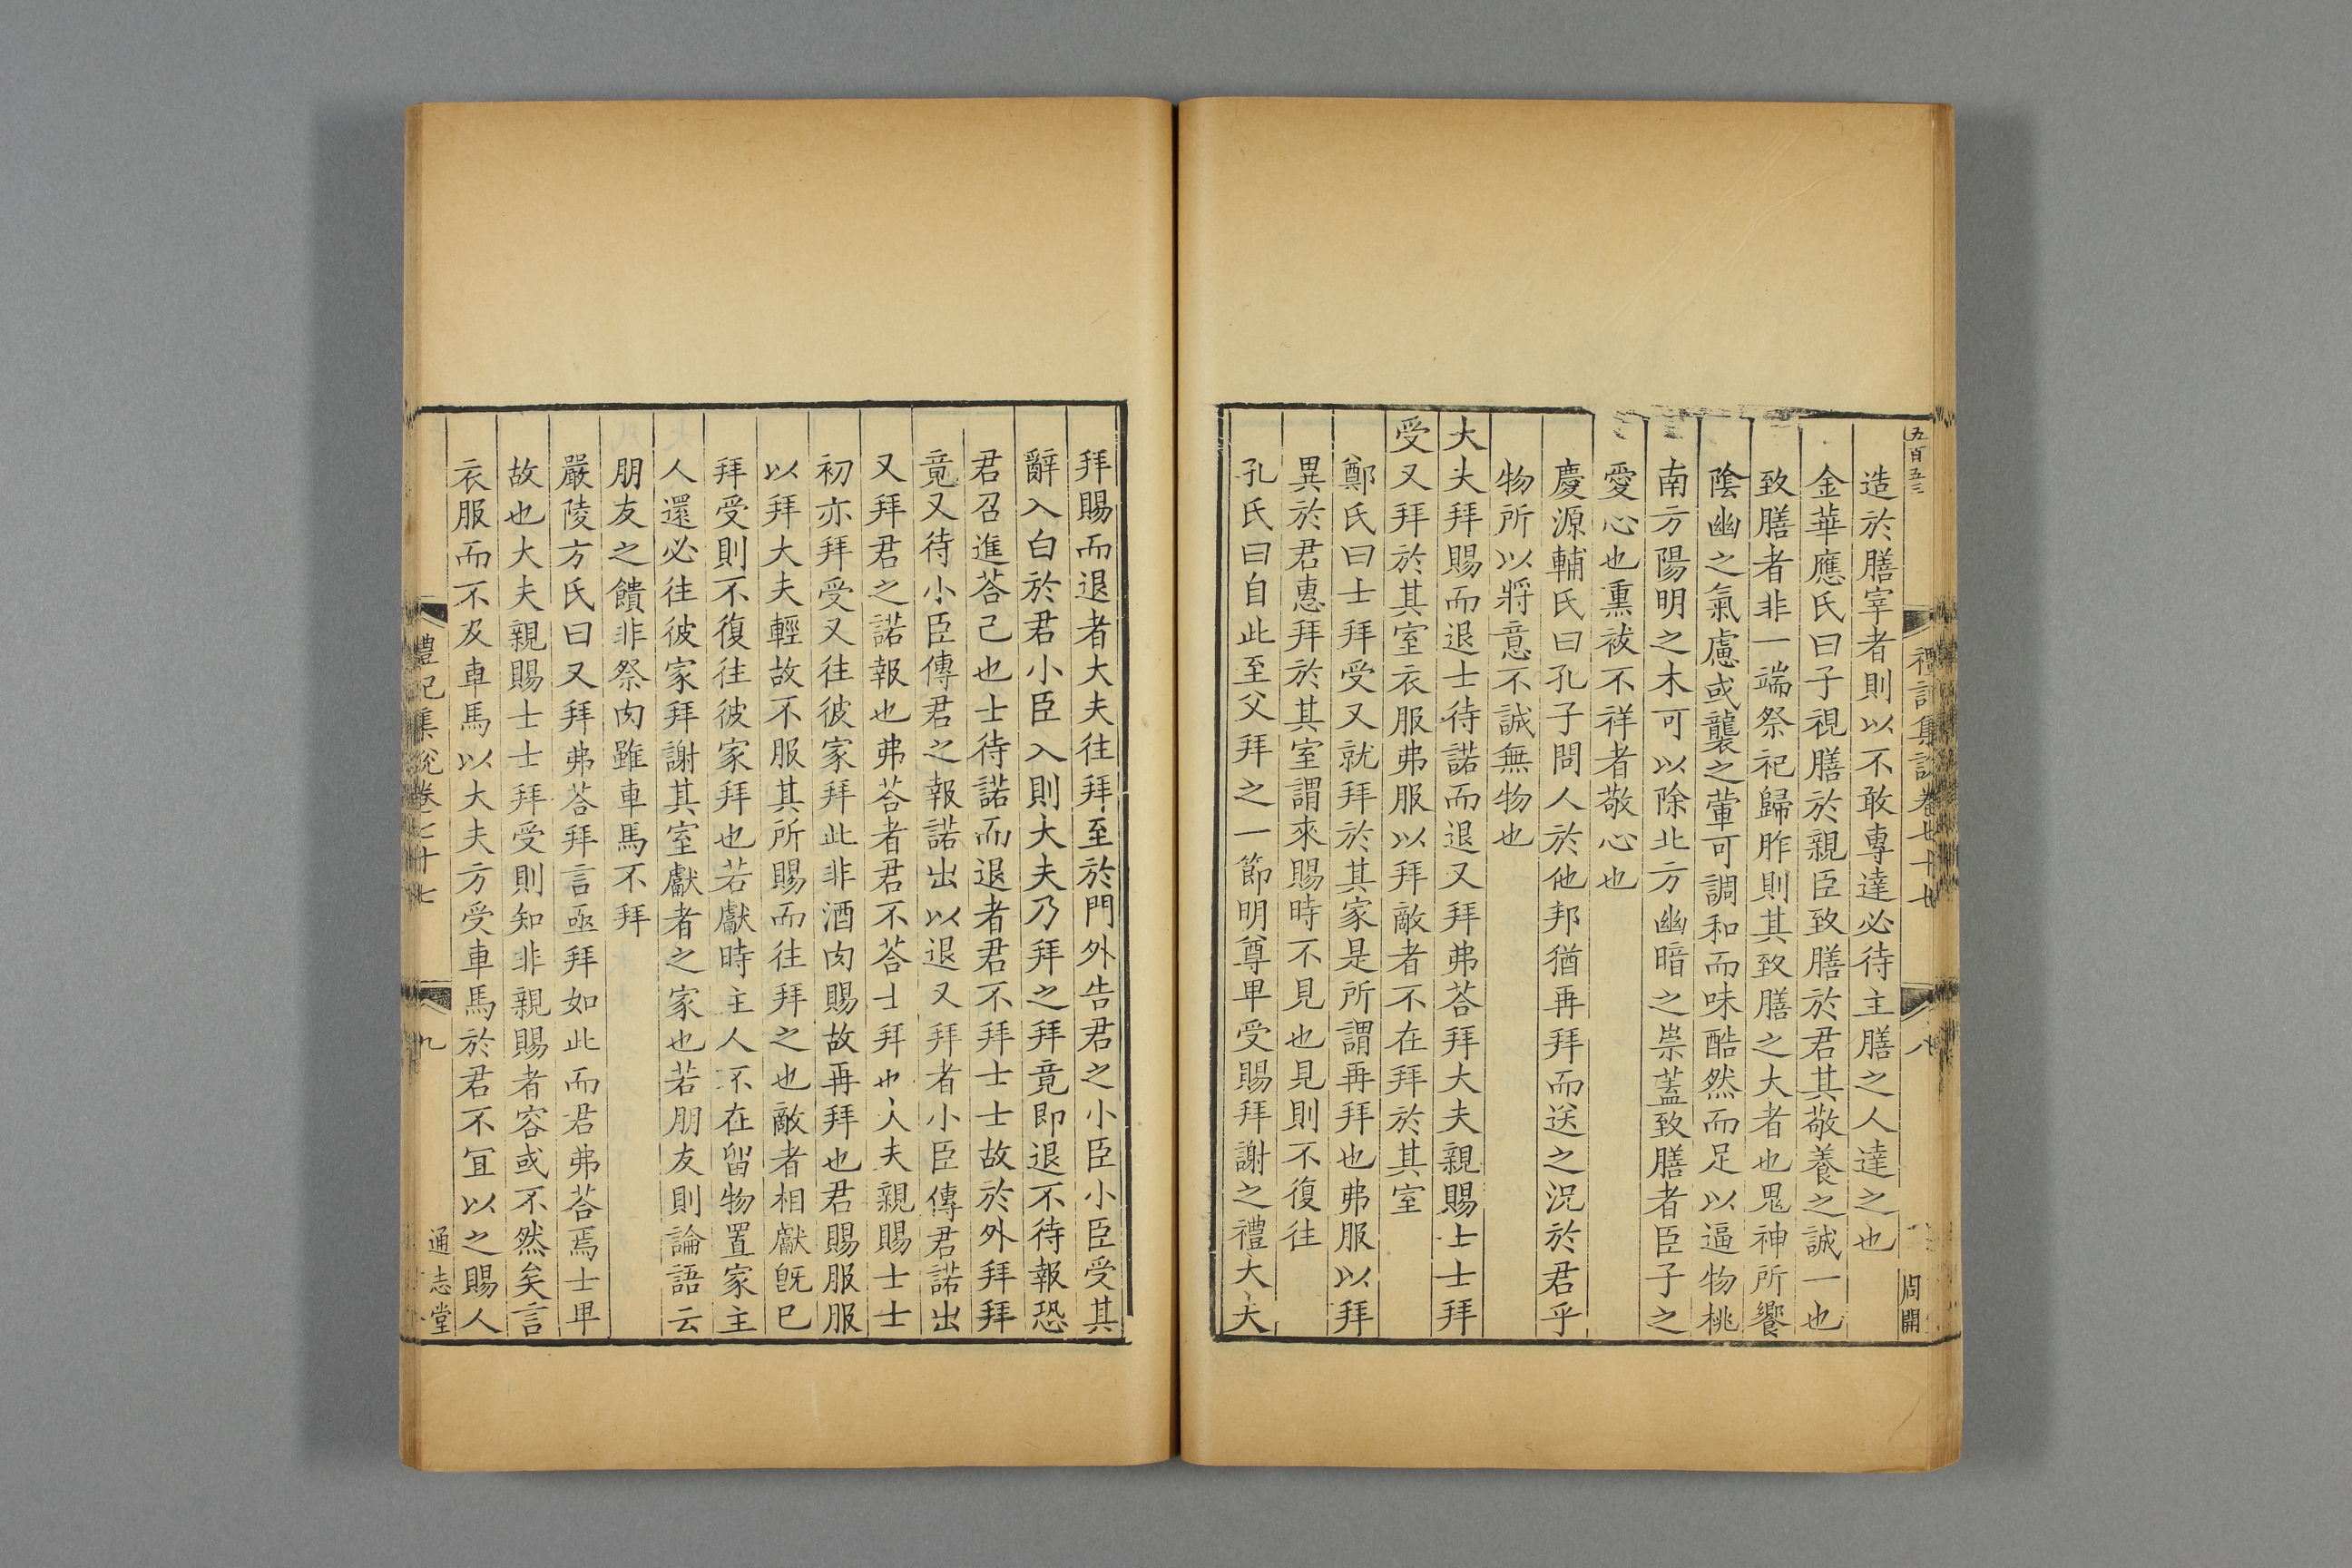 五百五三
禮記集說卷七十七
八
周開
造於膳宰者則以不敢專達必待主膳之人達之也
金華應氏曰子視膳於親臣致膳於君其敬養之誠一也
致膳者非一端祭祀歸胙則其致膳之大者也鬼神所饗
陰幽之氣慮或襲之葷可調和而味酷然而足以逼物桃
南方陽明之木可以除北方幽暗之祟蓋致膳者臣子之
愛心也熏祓不祥者敬心也
慶源輔氏曰孔子問人於他邦猶再拜而送之況於君乎
物所以將意不誠無物也
大夫拜賜而退士待諾而退又拜弗荅拜大夫親賜士士拜
受又拜於其室衣服弗服以拜敵者不在拜於其室
鄭氏曰士拜受又就拜於其家是所謂再拜也弗服以拜
異於君惠拜於其室謂來賜時不見也見則不復往
孔氏曰自此至父拜之一節明尊卑受賜拜謝之禮大夫
拜賜而退者大夫往拜至於門外告君之小臣小臣受其
辭入白於君小臣入則大夫乃拜之拜竟即退不待報恐
君召進荅己也士待諾而退者君不拜士士故於外拜拜
竟又待小臣傳君之報諾出以退又拜者小臣傳君諾出
又拜君之諾報也弗荅者君不荅士拜也大夫親賜士士
初亦拜受又往彼家拜此非酒肉賜故再拜也君賜服服
以拜大夫輕故不服其所賜而往拜之也敵者相獻旣巳
拜受則不復往彼家拜也若獻時主人不在留物置家主
人還必往彼家拜謝其室獻者之家也若朋友則論語云
朋友之饋非祭肉雖車馬不拜
嚴陵方氏曰又拜弗荅拜言亟拜如此而君弗荅焉士卑
故也大夫親賜士士拜受則知非親賜者容或不然矣言
衣服而不及車馬以大夫方受車馬於君不宜以之賜人
禮記集說卷七十七
九
通志堂